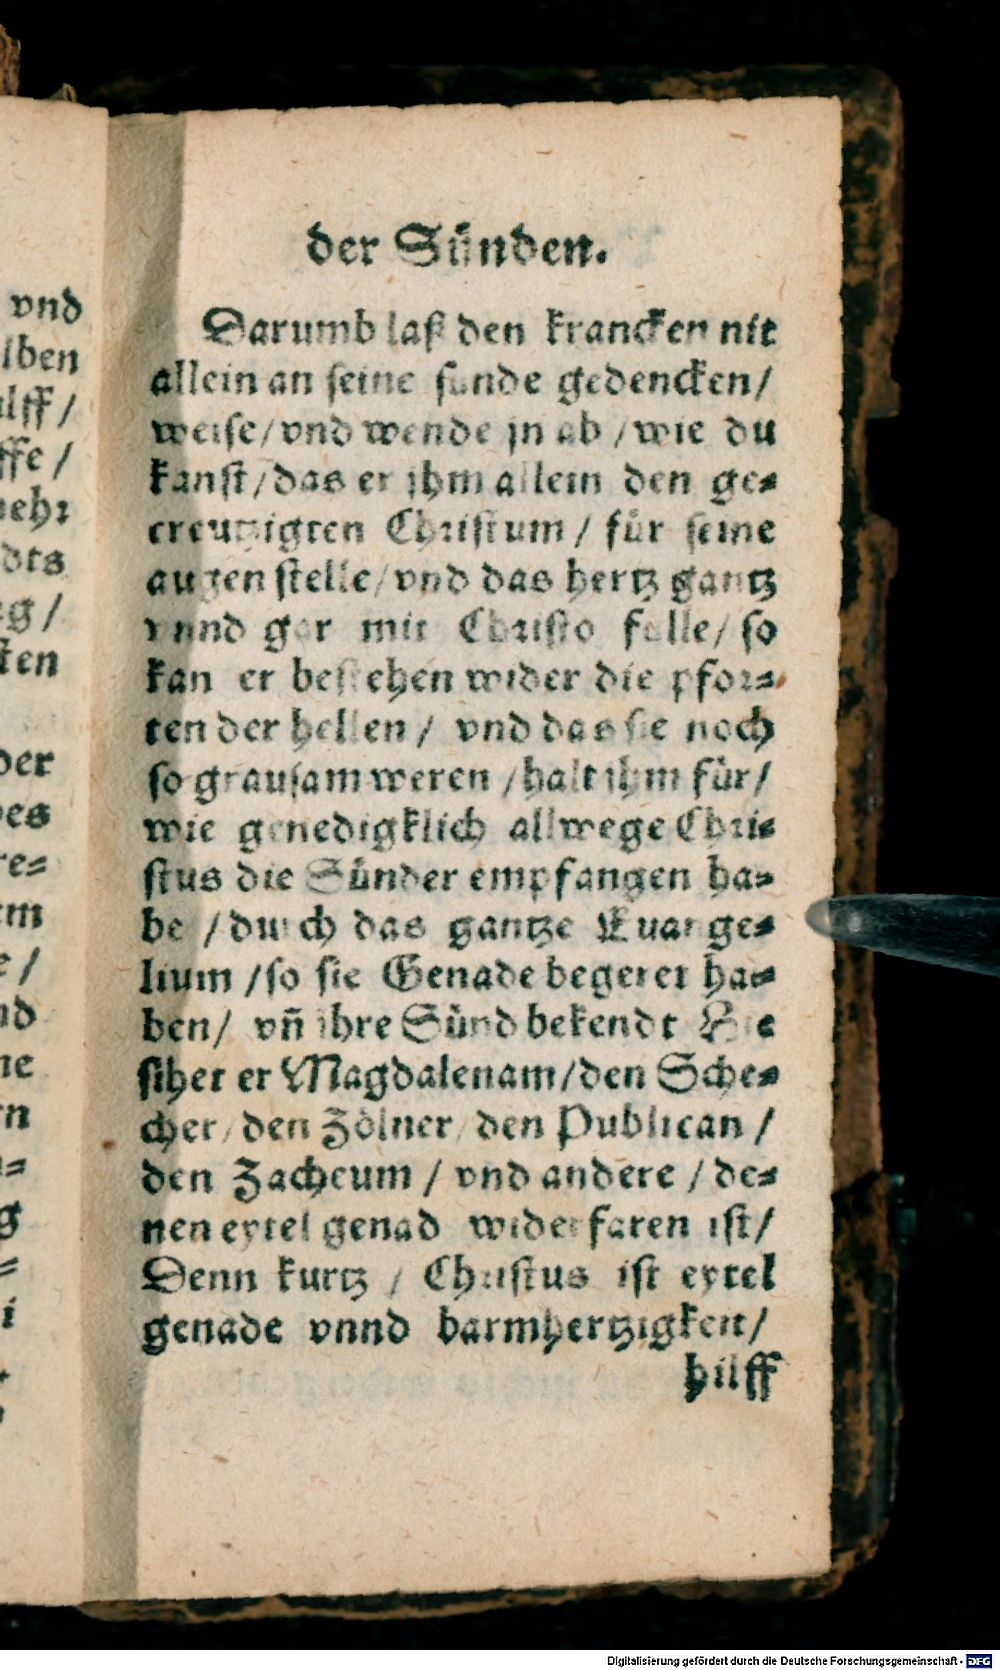 der Sünden.
Darumb laß den krancken nit
allein an seine sunde gedencken/
weise/vnd wende jn ab/wie du
kanst/das er jhm allein den ge⸗
creutzigten Christum/ für seine
augen stelle/vnd das hertz gantz
vnnd gar mit Christo falle/ so
kan er bestehen wider die pfor⸗
ten der hellen/ vnd das sie noch
so grausam weren/halt jhm für/
wie genedigklich allwege Chri⸗
stus die Sünder empfangen ha⸗
be/durch das gantze Euange⸗
lium/so sie Genade begeret ha⸗
ben/ vñ ihre Sünd bekendt Hie
sihet er Magdalenam/den Sche⸗
cher/den Zölner/den Publican/
den Zacheum/ vnd andere/ de⸗
nen eytel genad widerfaren ist/
Denn kurtz/ Christus ist eytel
genade vnnd barmhertzigkeit/
hilff
vnd
lben
ffe/
dts
g/
ten
der
es
re⸗
em
e/
nd
ne
Digitalisierung gefördert durch die Deutsche Forschungsgemeinschaft - DFG